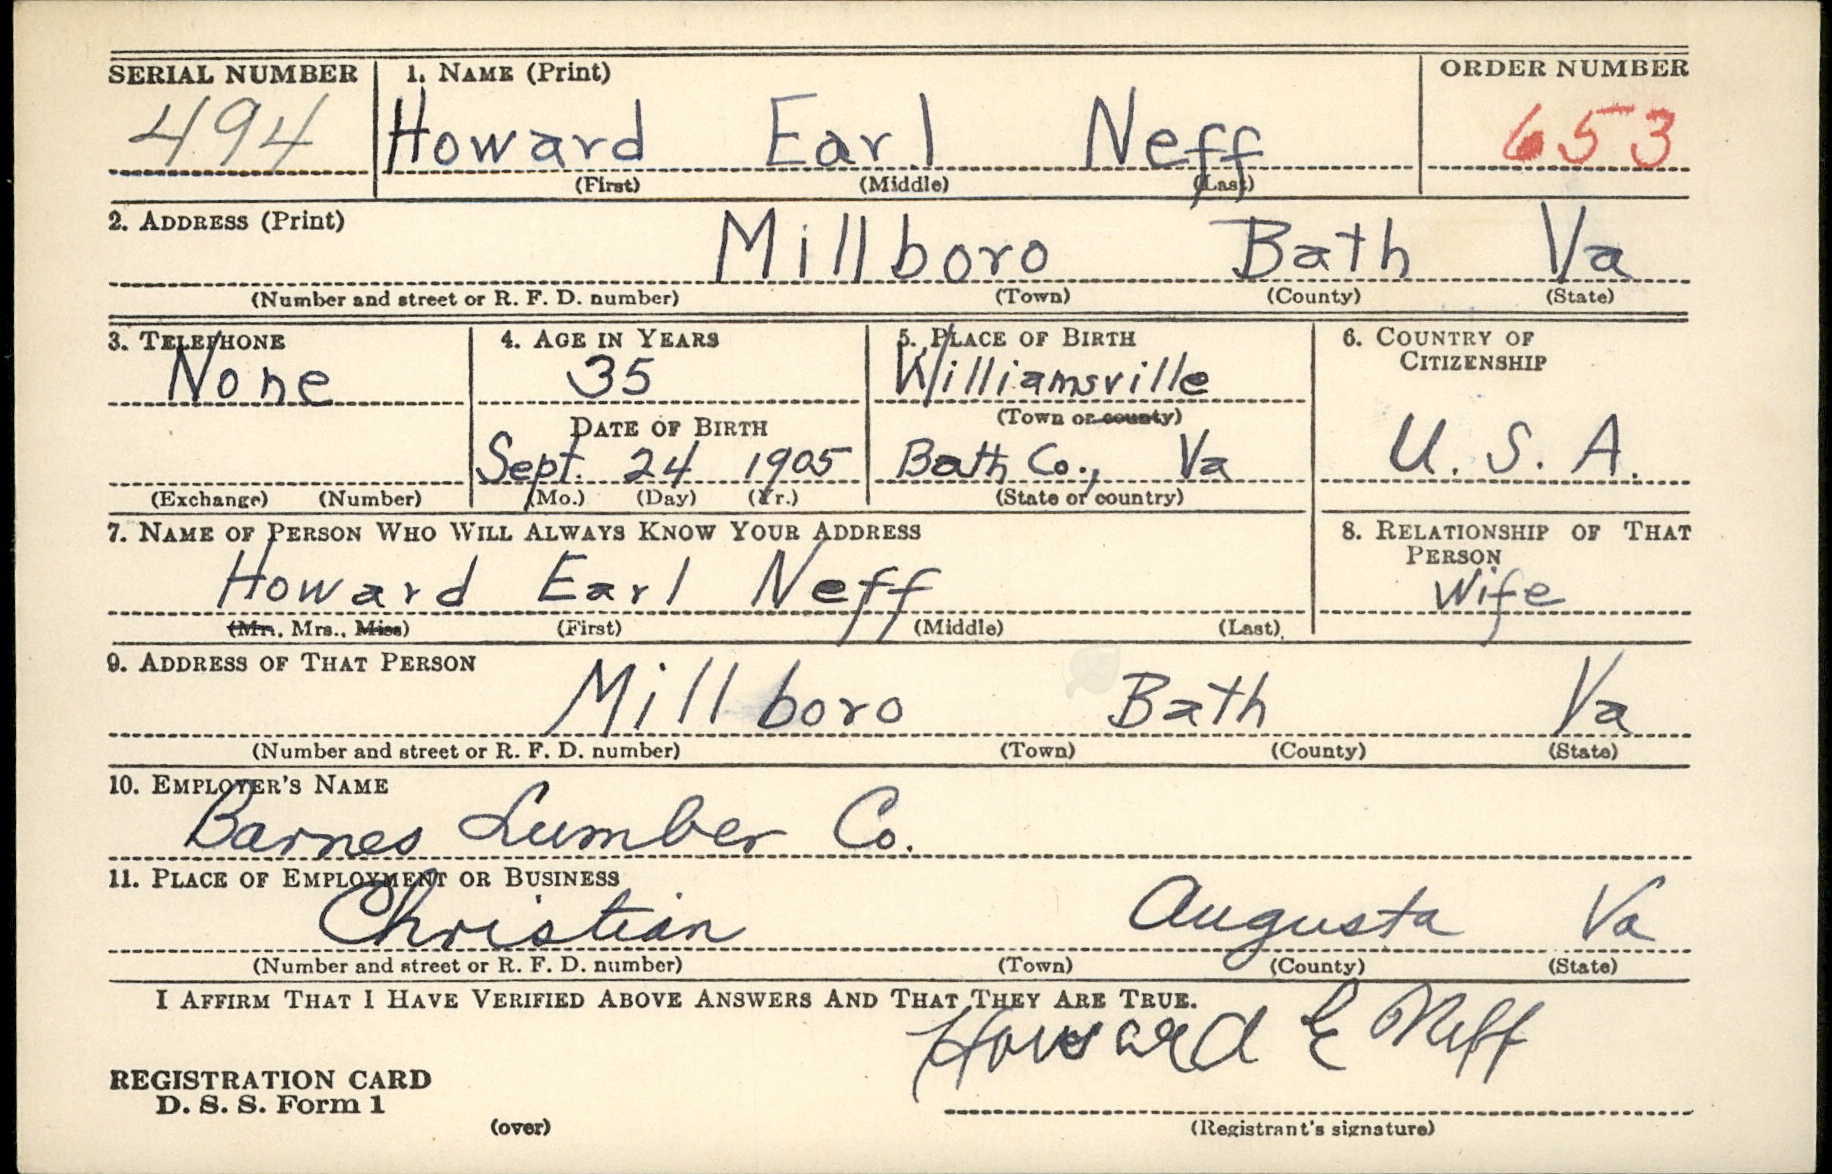 SERIAL NUMBER 1. NAME (Print) ORDER NUMBER
494 Howard Earl Neff 653
(First) (Middle) (Last)
2. ADDRESS (Print)
Millboro Bath Va
(Number and street or R. F. D. number) (Town) (County) (State)
3. TELEPHONE 4. AGE IN YEARS 5. PLACE OF BIRTH 6. COUNTRY OF
CITIZENSHIP
None 35 Williamsville
(Town or county)
DATE OF BIRTH
Sept. 24 1905 Bath Co., Va U. S. A.
(Exchange) (Number) (Mo.) (Day) (Yr.) (State or country)
7. NAME OF PERSON WHO WILL ALWAYS KNOW YOUR ADDRESS 8. RELATIONSHIP OF THAT
PERSON
Howard Earl Neff Wife
(Mr., Mrs., Miss) (First) (Middle) (Last)
9. ADDRESS OF THAT PERSON
Millboro Bath Va
(Number and street or R. F. D. number) (Town) (County) (State)
10. EMPLOYER'S NAME
Barnes Lumber Co.
11. PLACE OF EMPLOYMENT OR BUSINESS
Christian Augusta Va
(Number and street or R. F. D. number) (Town) (County) (State)
I AFFIRM THAT I HAVE VERIFIED ABOVE ANSWERS AND THAT THEY ARE TRUE.
Howard E Neff
REGISTRATION CARD
D. S. S. Form 1
(over) (Registrant's signature)